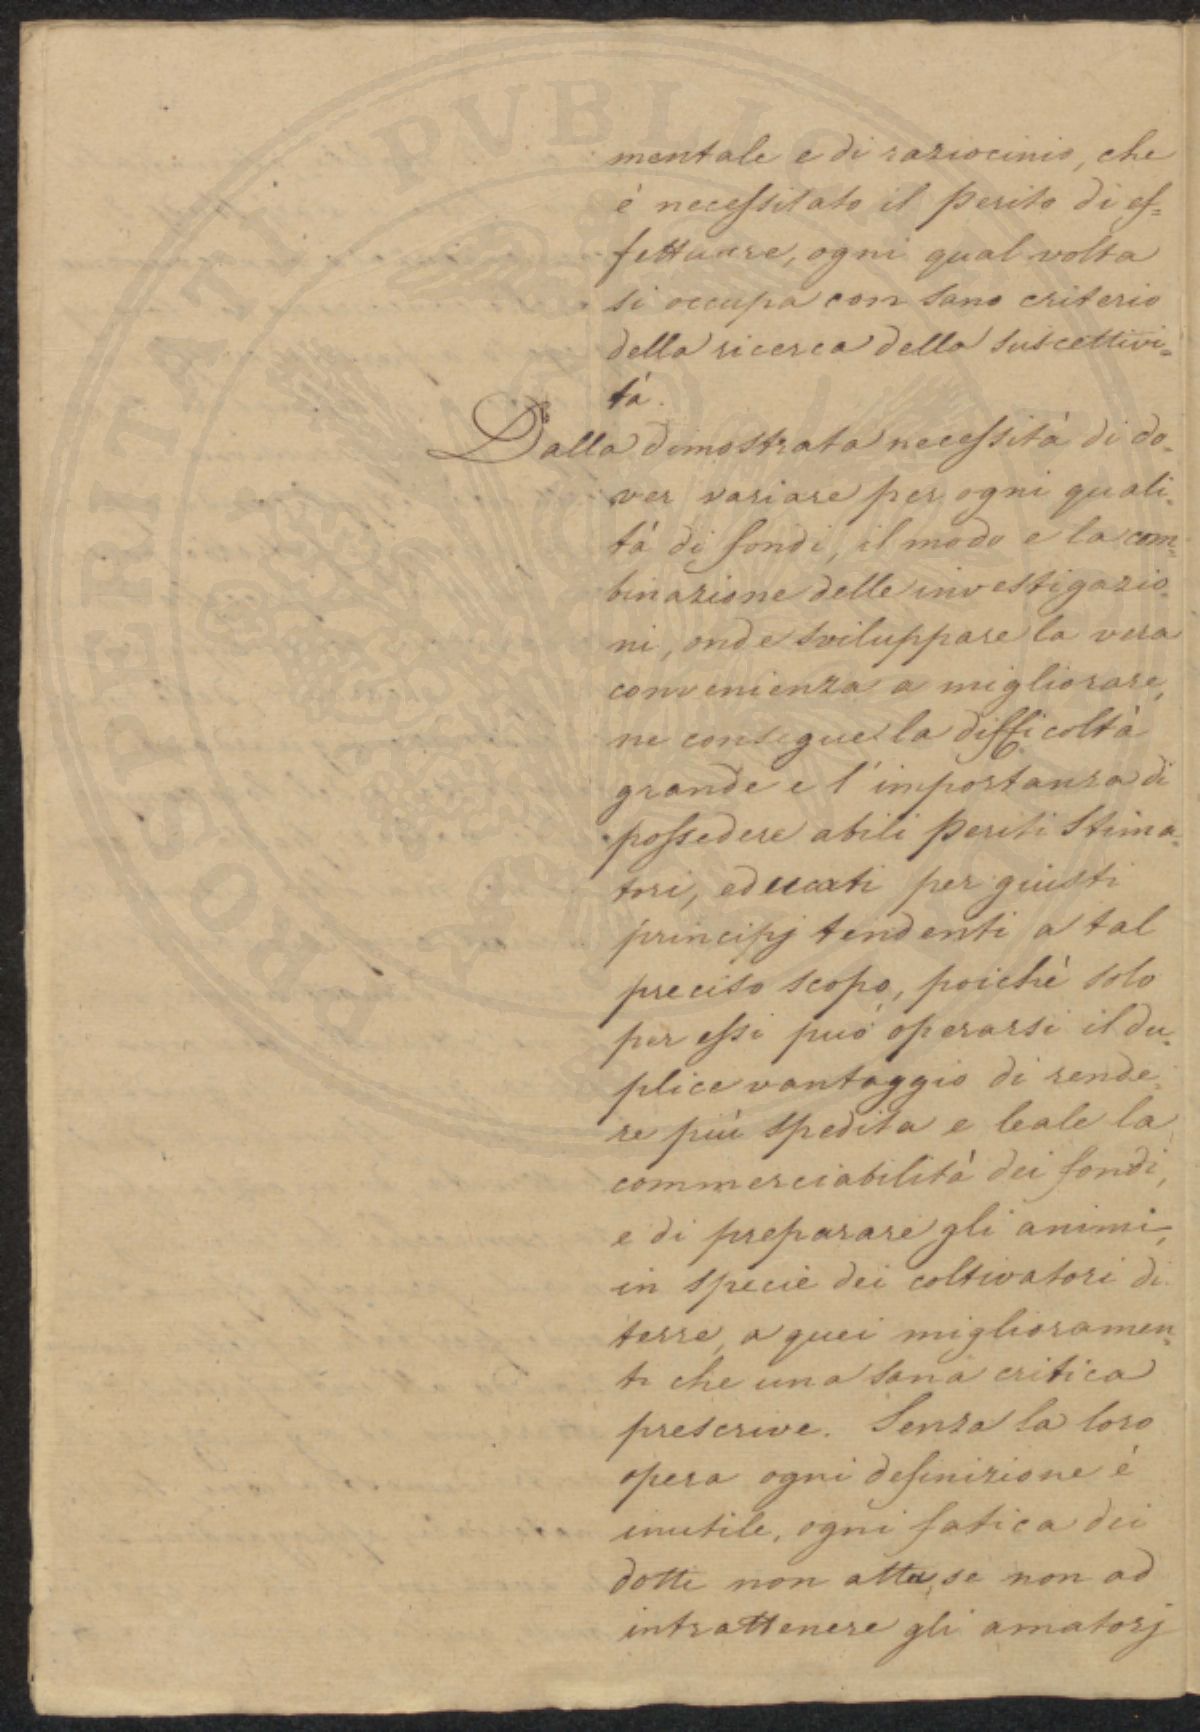 mentale e di raziocinio, che
è necessitato il Perito di ef=
fettuare, ogni qual volta
si occupa con sano criterio
della ricerca della suscettivi=
tà.
Dalla dimostrata necessità di do=
ver variare per ogni quali=
tà di fondi, il modo e la com=
binazione delle investigazio=
ni, onde sviluppare la vera
convenienza a migliorare,
ne consegue la difficoltà
grande e l'importanza di
possedere abili Periti Stima=
tori, educati per giusti
principj tendenti a tal
preciso scopo, poichè solo
per essi può operarsi il du=
plice vantaggio di rende=
re più spedita e leale la
commerciabilità dei fondi,
e di preparare gli animi,
in specie dei coltivatori di
terre, a quei miglioramen=
ti che una sana critica
prescrive. Senza la loro
opera ogni definizione è
inutile, ogni fatica dei
dotti non atta, se non ad
intrattenere gli amatorj
PROSPERITATI PUBLICAE